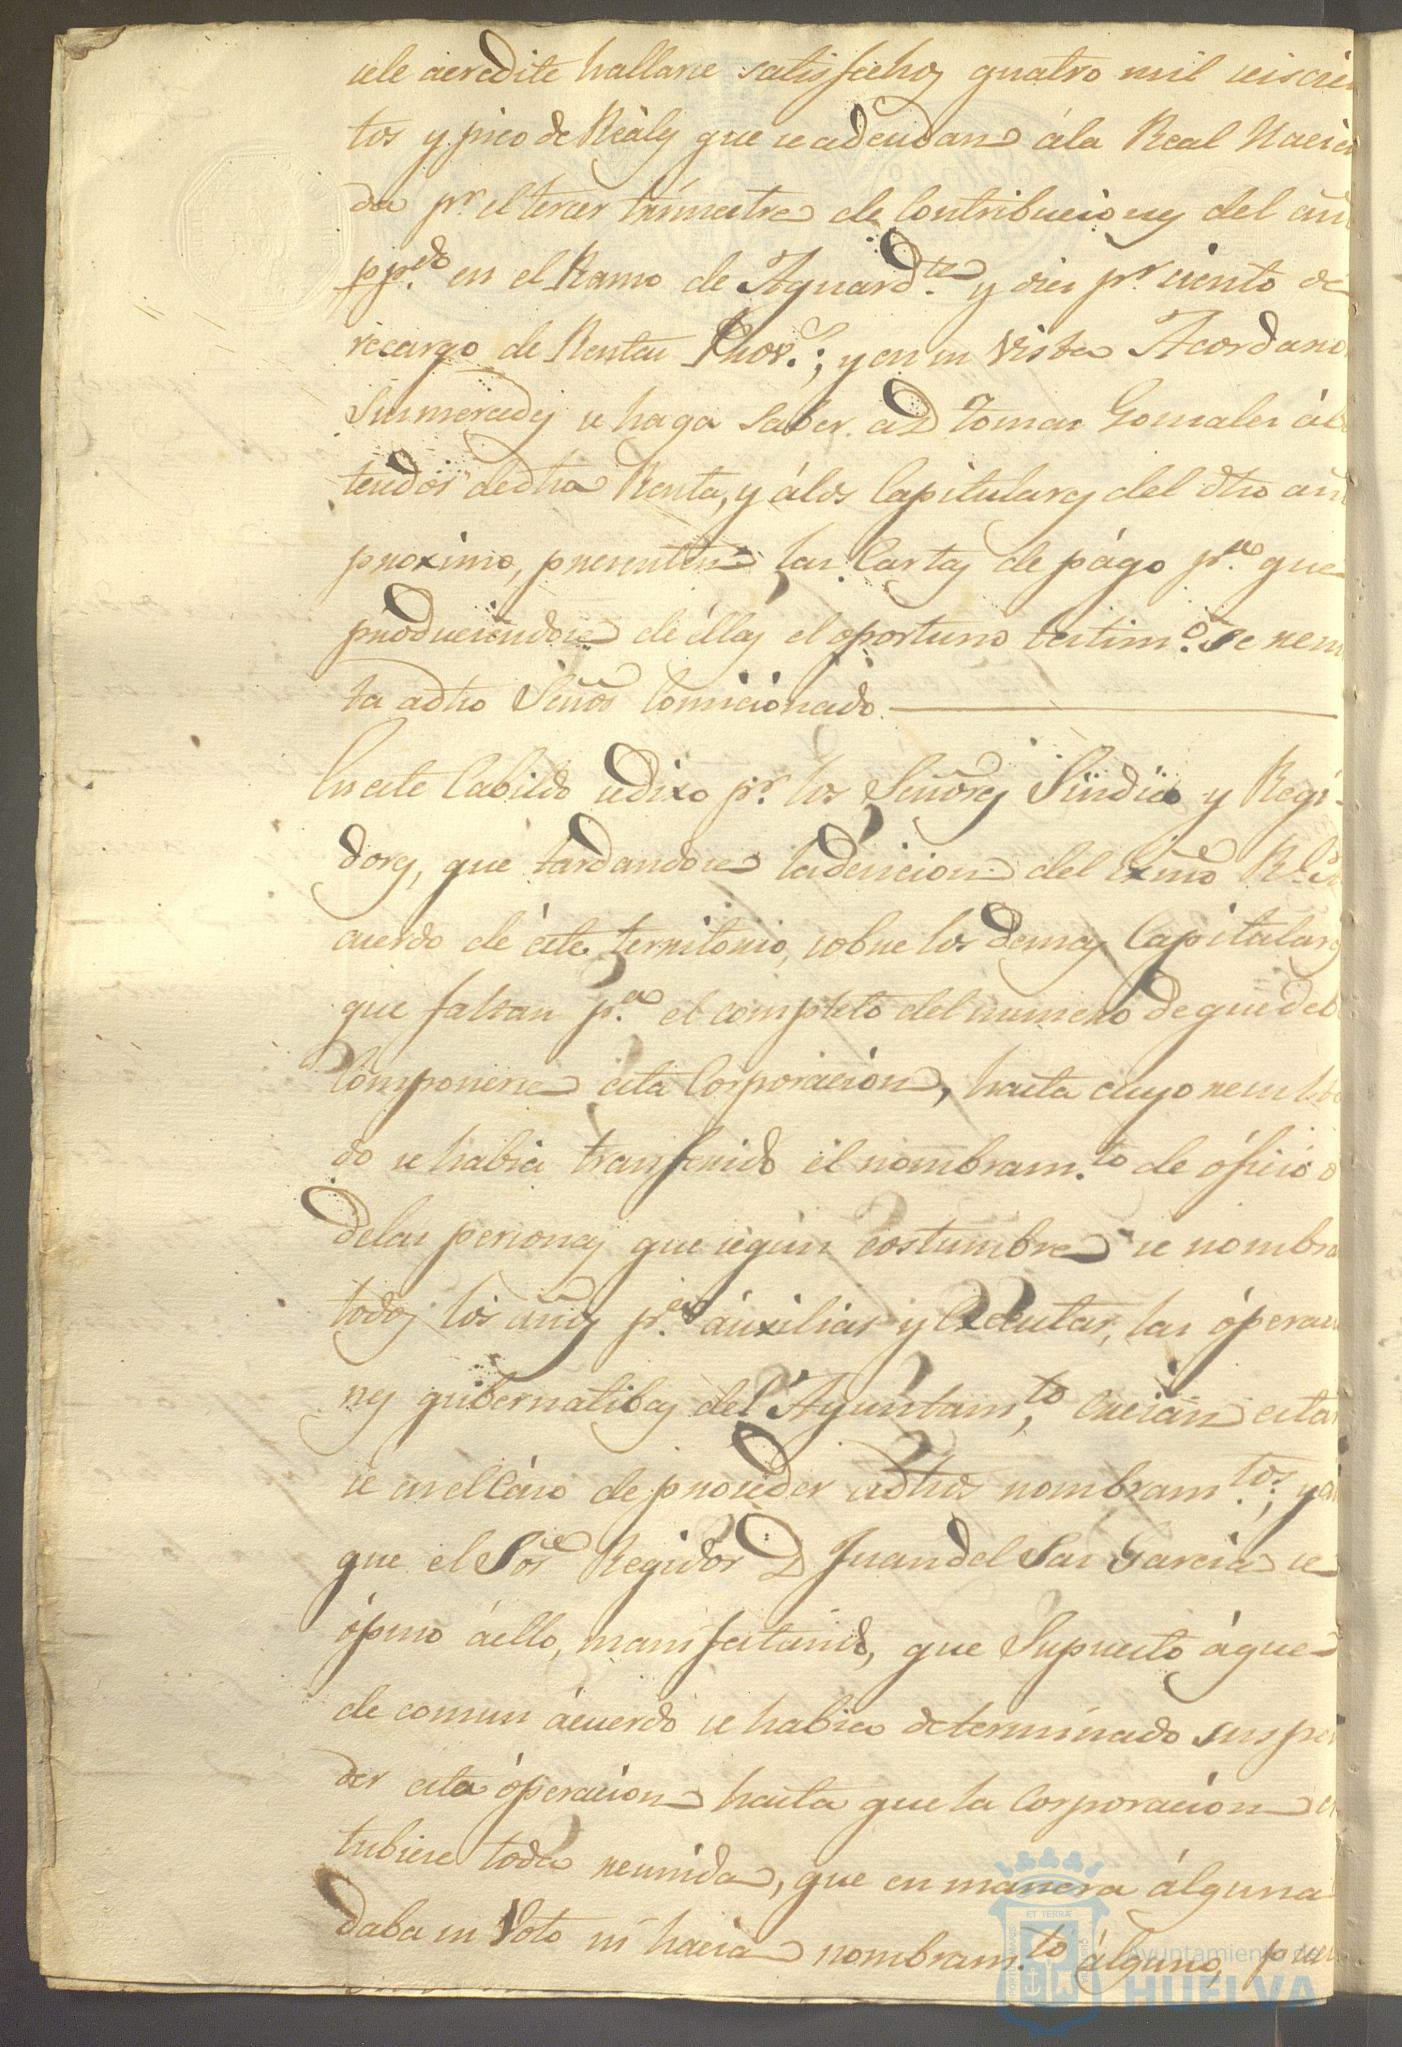 sele acredite hallarse satisfechos quatro mil seiscien
tos y pico de Reales que se adeudan á la Real Hacien
da pr. el tercer trimestre de Contribuciones del año
ppdo. en el Ramo de Aguardte. y diez pr. ciento de
recargo de Rentas Prov.s; y en su vista Acordaron
Sus mercedes se haga saber a D Tomas Gonzales
tendor dedha Renta, y álos Capitulares del dho año
proximo, presenten las Cartas de págo pa. que
produciendose de éllas el oportuno testimo. Se remi
ta adho Señor Comicionado.
En este Cabildo sedixo pr. los Señores Sindico y Regi
dores, que tardandose ladecicion del Exmo Rl. A
cuerdo de éste territorio, sobre los demas Capitulares
que faltan pa. el completo del numero de que debe
Componerse esta Corporacion, hasta cuyo resulta
do se habia transferido el nombramto. de óficio
delas personas que segun costumbre se nombran
todos los años pa. áuxiliar y Executar, las óperacio
nes gubernatibas del Ayuntamto, creian estar
se en el Cáso de proceder adhos nombramtos.; y
que el Sor Regidor D Juan del Saz Garcia se
ópuso áello, manifestando, que Supuesto áque
de comun ácuerdo se habia determinado suspen
der esta óperacion hasta que la Corporacion es
tubiese toda reunida, que en manera álguna
daba su Voto ni hacia nombramto. álguno, pues
Ayuntamiento de
HUELVA